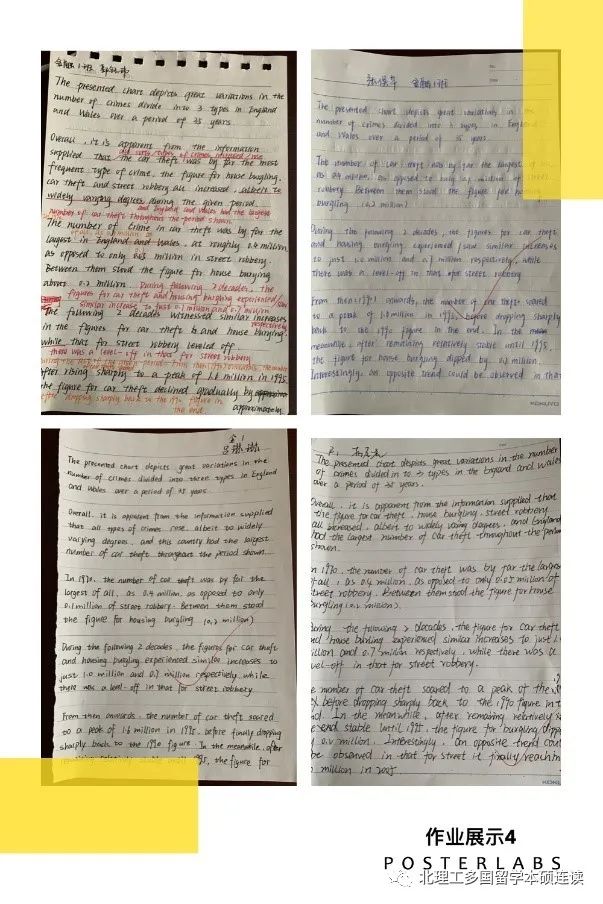 金融1班
The presented chart depicts great variations in the
number of crimes divide into 3 types in England
and Wales over a period of 35 years
Overall, it is apparent from the information
supplied that the car theft was by far the most
frequent type of crime, the figure for house burgling,
car theft and street robbery all increased, albeit to
widely varying degrees, during the given period.
and England and Wales had the largest
number of car theft throughout the period shown
The number of crime in car theft was by far the
largest in England and Wales, at roughly 0.4 million
as opposed to only million in street robbery.
Between them stood the figure for house burgling
above 0.2 million. During following 2 decades, the
figures for car theft and housing burgling experienced/saw
similar increase to just 1.0 million and 0.7 million
respectively
The following 2 decades witnessed similar increases
in the figures for car theft and house burgling,
while that for street robbery leveled off
there was a level-off in that for street robbery
After rising sharply to a peak of 1.6 million in 1995,
the figure for car theft declined gradually by
approximately
after dropping sharply back to the 1990 figure in
the end.
金融1班
The presented chart depicts great variations in the
number of crimes divided into 3 types in England
and Wales over a period of 35 years
The number of car theft was by far the largest of all,
as 0.4 million, as opposed to only million of street
robbery. Between them stood the figure for housing
burgling (0.2 million)
During the following 2 decades, the figures for car theft
and housing burgling experienced/saw similar increases
to just 1.0 million and 0.7 million respectively, while
there was a level-off in that for street robbery.
From then (1991) onwards, the number of car theft soared
to a peak of 1.6 million in 1995, before dropping sharply
back to the 1990 figure in the end. In the
meanwhile, after remaining relatively stable until 1995,
the figure for house burgling dipped by million.
Interestingly, an opposite trend could be observed in that
KOKUYO
金1
The presented chart depicts great variations in the
number of crimes divided into three types in England
and Wales over a period of 35 years
Overall, it is apparent from the information supplied
that all types of crimes rose, albeit to widely
varying degrees, and this country had the largest
number of car theft throughout the period shown.
In 1970, the number of car theft was by far the
largest of all, as 0.4 million, as opposed to only
0.1 million of street robbery. Between them stood
the figure for housing burgling (0.2 million)
During the following 2 decades, the figures for car theft
and housing burgling experienced similar increases to
just 1.0 million and 0.7 million respectively, while
there was a level-off in that for street robbery.
From then onwards, the number of car theft soared
to a peak of 1.6 million in 1995, before finally dropping
sharply back to the 1990 figure. In the meanwhile, after
remaining relatively stable until 1995, the figure for
The presented chart depicts great variations in the number
of crimes divided into 3 types in the England and Wales
over a period of 35 years.
Overall, it is apparent from the information supplied that
the figure for car theft, house burgling, street robbery
all increased, albert to widely varing degrees, and England
had the largest number of car theft throughout the period
shown.
In 1970, the number of car theft was by far the largest
of all, as 0.4 million, as opposed to only million of
street robbery. Between them stood the figure for house
burgling (0.2 million).
During the following 2 decades, the figure for car theft
and house burgling experienced similar increases to just 1.0
million and 0.7 million respectively, while there was a
level-off in that for street robbery.
e number of car theft soared to a peak of the
before dropping sharply back to the 1990 figure in t
nd. In the meanwhile, after remaining relatively
stable until 1995, the figure for burgling dropped
million. Interestingly, an opposite trend could
be observed in that for street it finally reaching
million in 2005
KOKUYO
作业展示4
POSTERLABS
北理工多国留学本硕连读